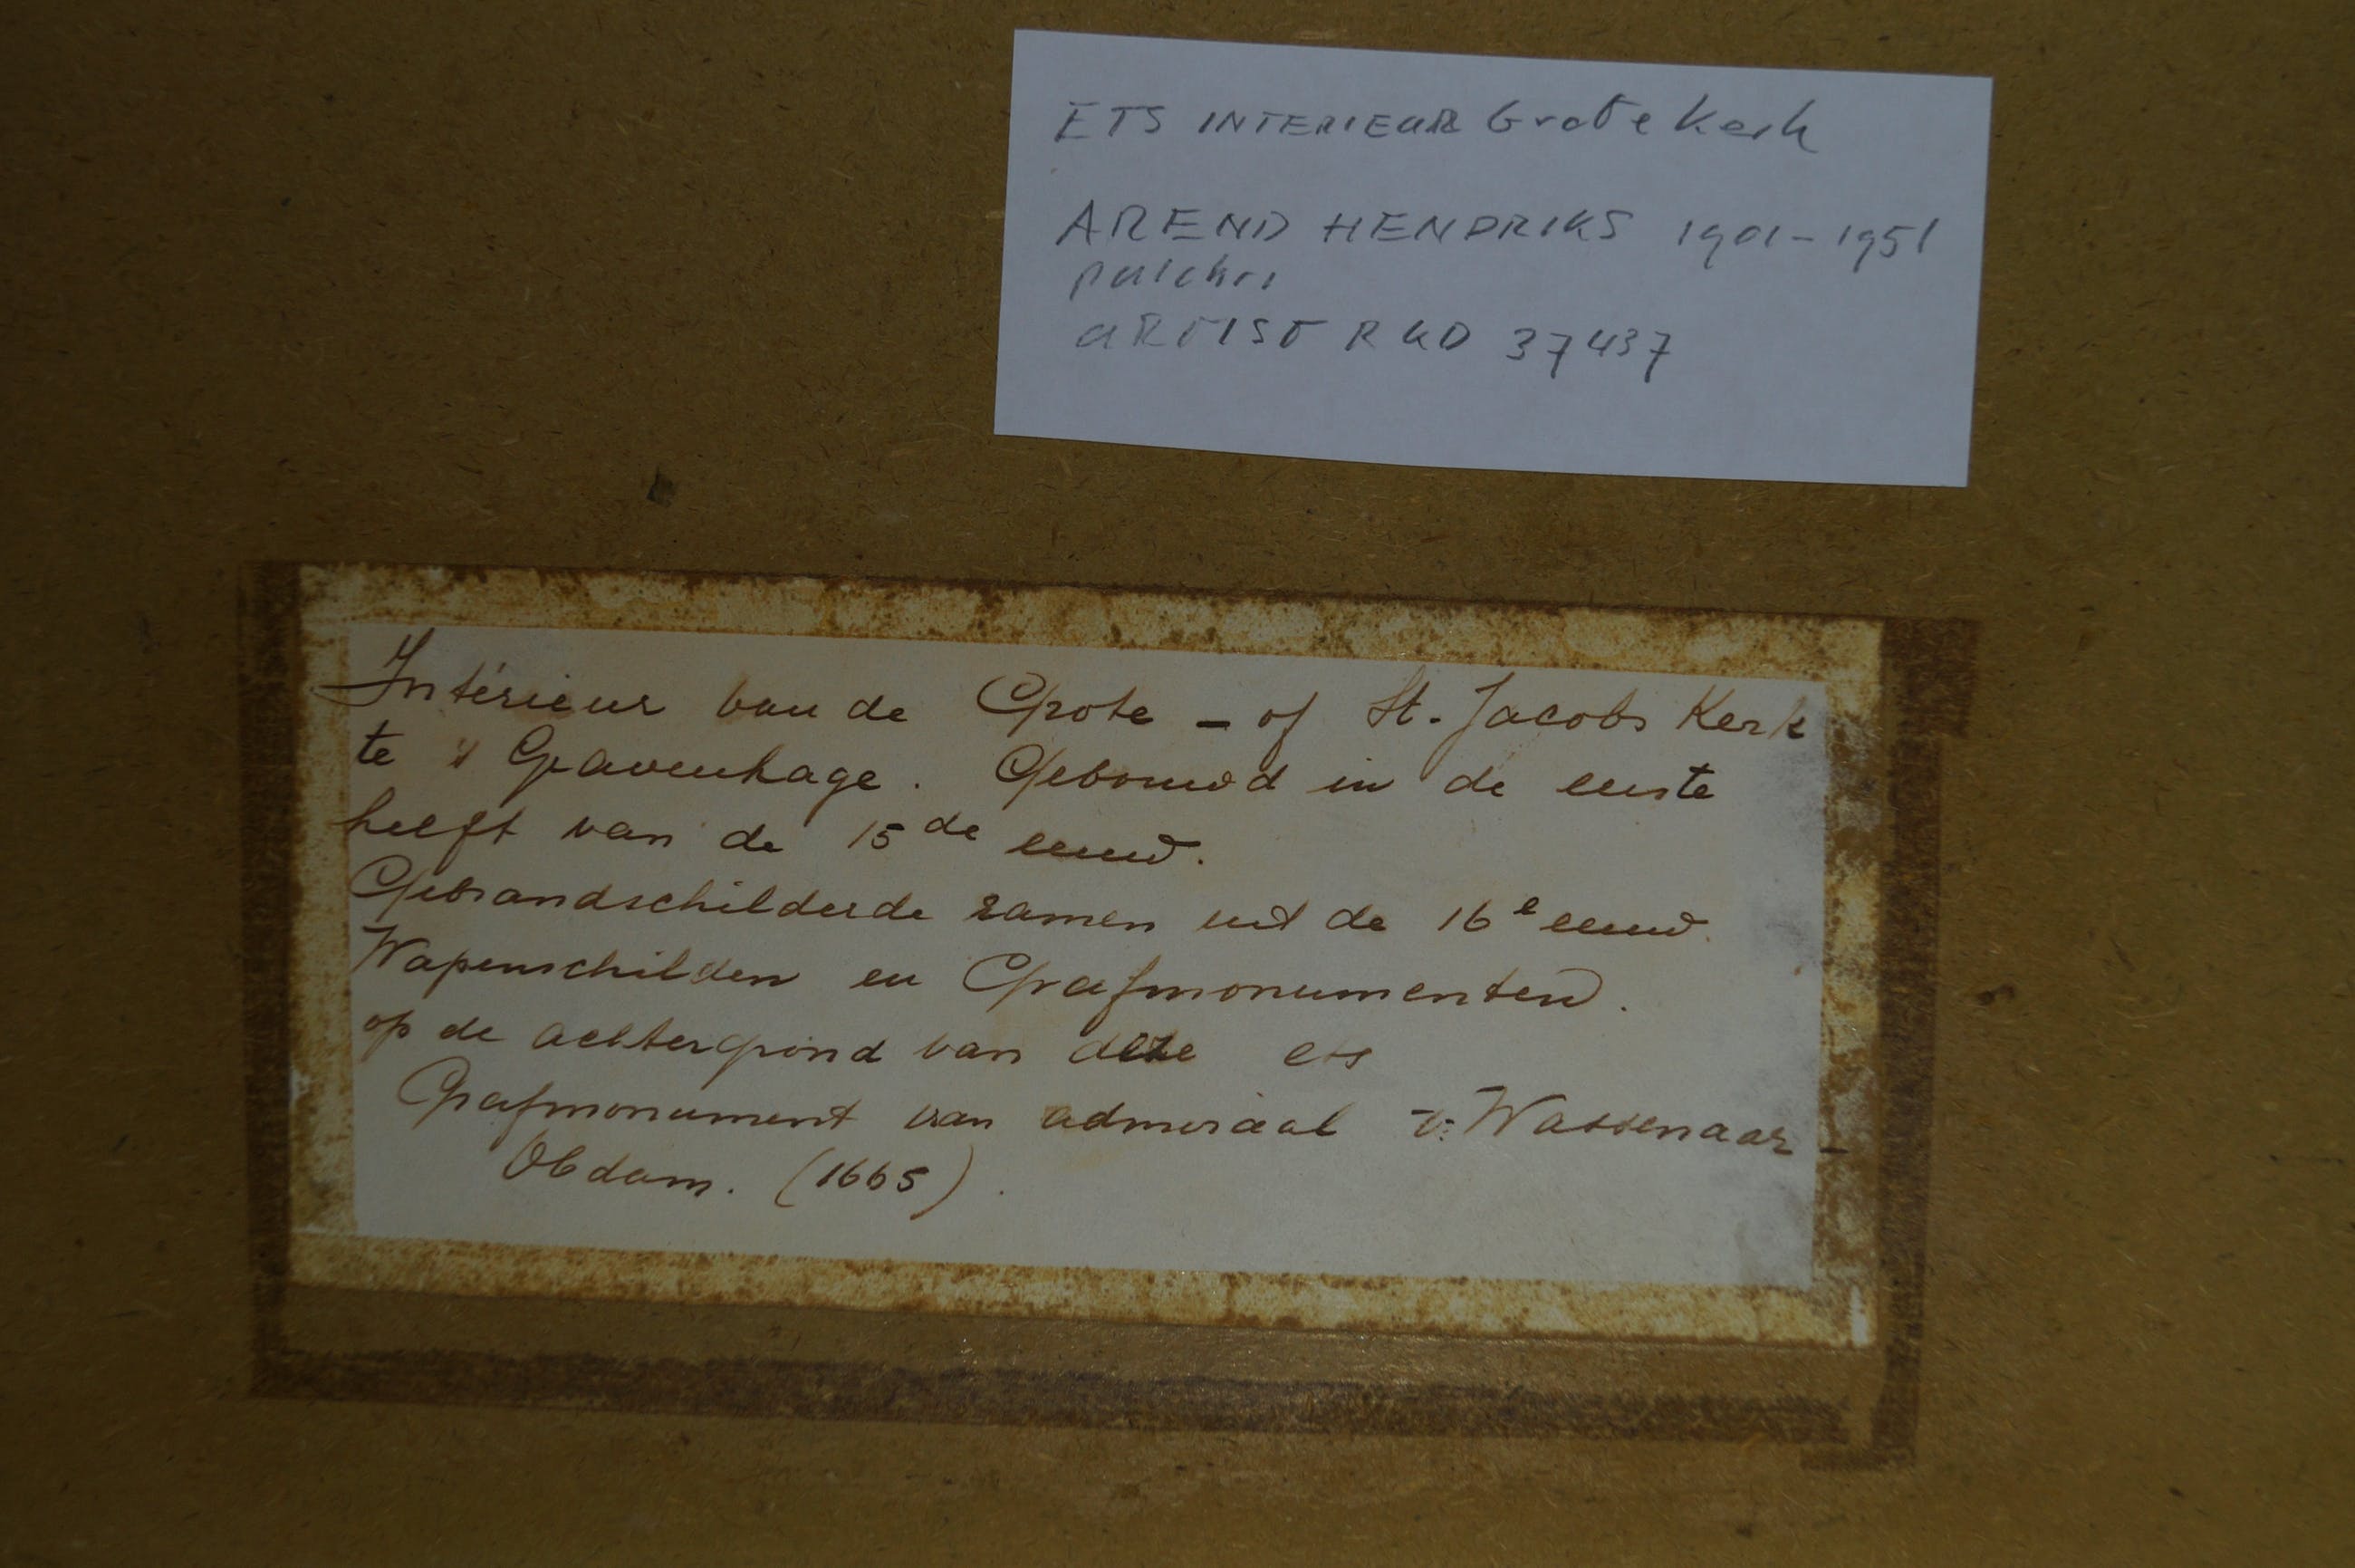 ETS INTERIEUR Grote Kerk
AREND HENDRIKS 1901-1951
pulchri
ARTIST RKD 37437
Intérieur van de Grote - of St. Jacobs Kerk
te 's Gravenhage. Gebouwd in de eerste
helft van de 15de eeuw.
Gebrandschilderde ramen uit de 16e eeuw.
Wapenschilden en Grafmonumenten.
op de achtergrond van deze ets
Grafmonument van admiraal v. Wassenaar -
Obdam. (1665).